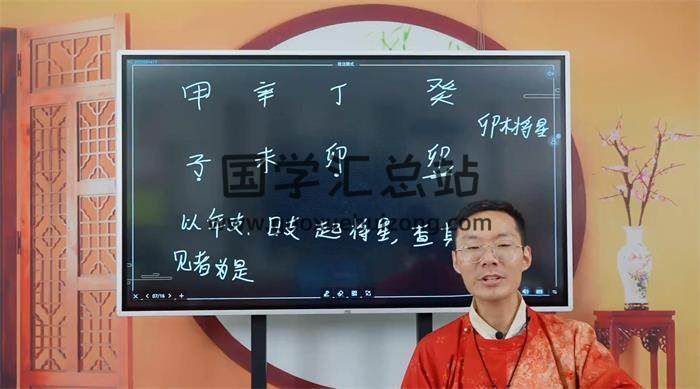 甲 辛 丁 癸
卯木将星
子 未 卯 卯
国学汇总站
以年支、日支起将星,查其
见者为是
07/16